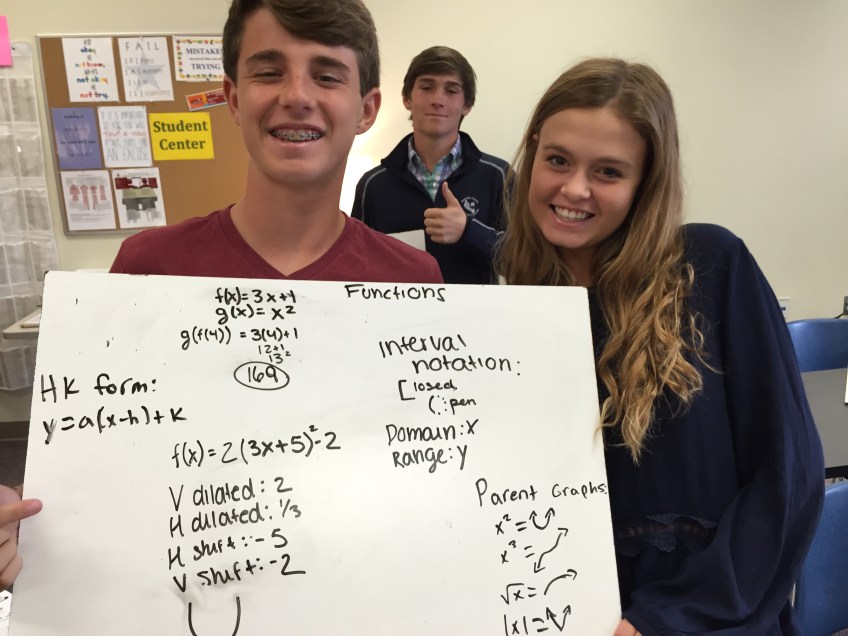 FAIL
MISTAKES
TRYING
Student
Center
Functions
f(x)=3x+1
g(x)=x²
g(f(4))=3(4)+1
12+1
13²
169
HK form:
y=a(x-h)+k
f(x)=2(3x+5)²-2
V dilated: 2
H dilated: 1/3
H shift: -5
V shift: -2
Interval
notation:
[losed
(pen
Domain: x
Range: y
Parent Graphs:
x²=
x³=
√x=
|x|=